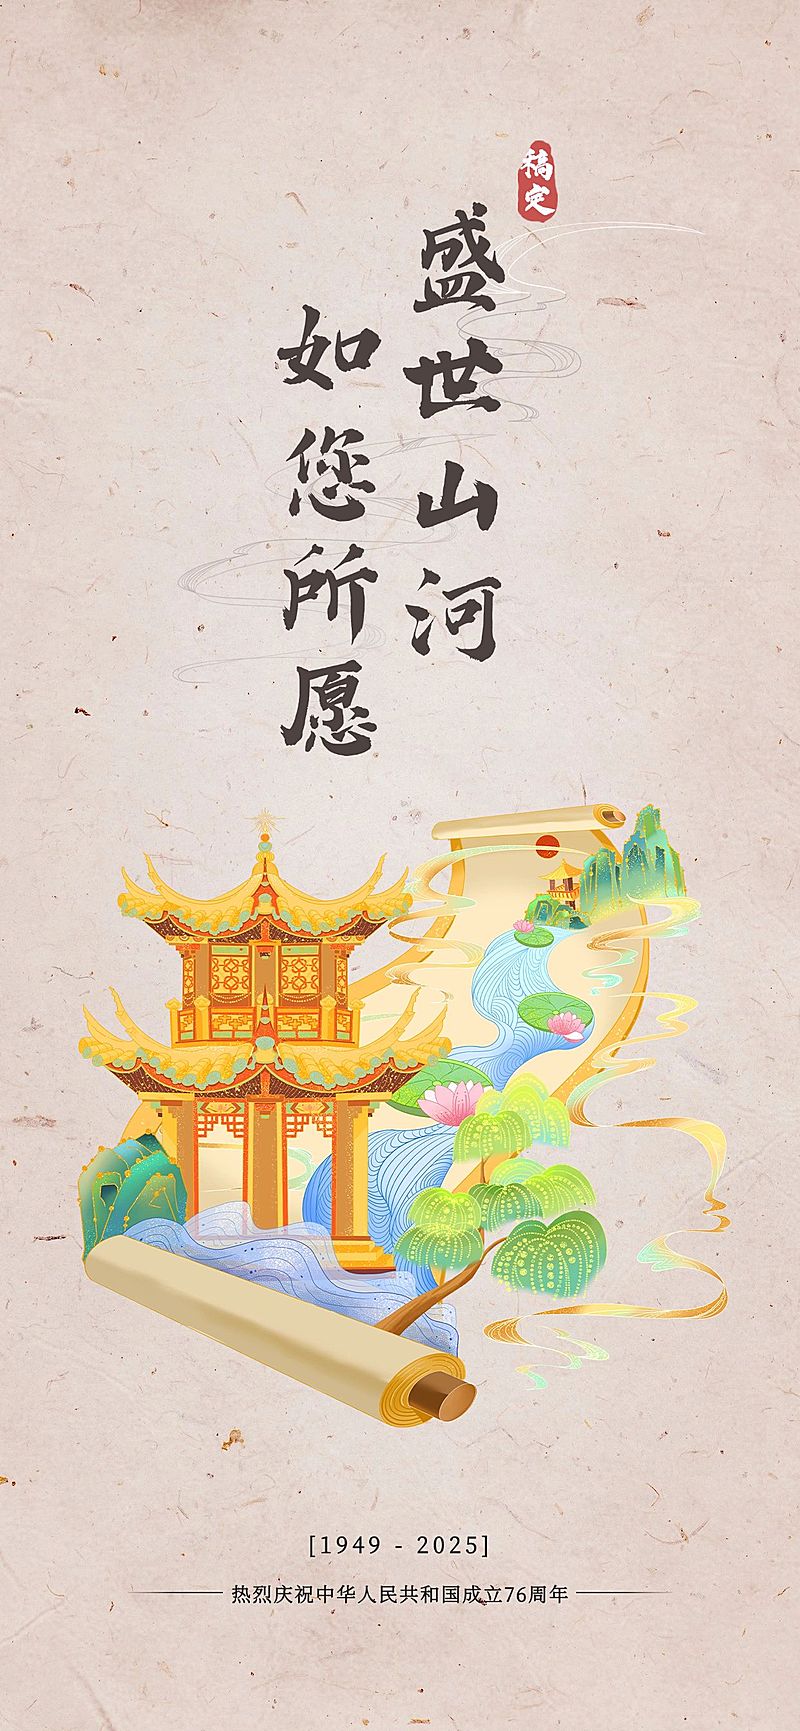 稿定
盛世山河
如您所愿
[1949 - 2025]
热烈庆祝中华人民共和国成立76周年